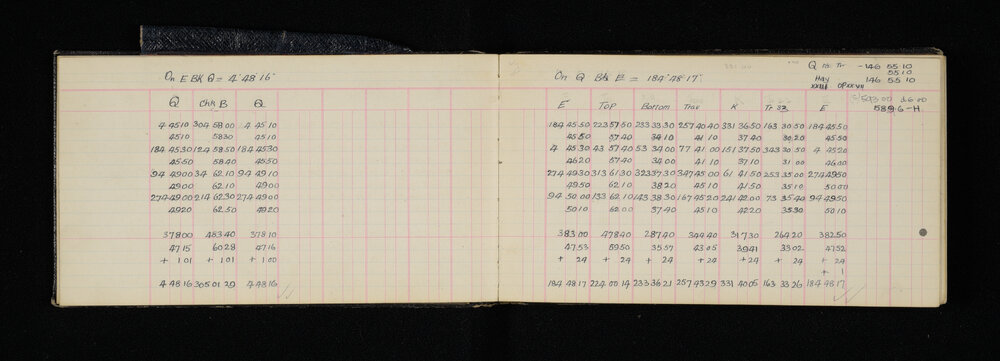 On E BK Q = 4° 48' 16"
Q Chk B Q
4 45 10 304 58 00 4 45 10
45 10 58 30 45 10
184 45 30 124 58 50 184 45 30
45 50 58 40 45 50
94 49 00 34 62 10 94 49 10
49 00 62 10 49 00
274 49 00 214 62 30 274 49 00
49 20 62 50 49 20
378 00 483 40 378 10
47 15 60 28 47 16
+ 1 01 + 1 01 + 1 00
4 48 16 305 01 29 4 48 16
On Q Bk E = 184° 48' 17"
Q to Tr - 146 55 10
55 10
Hay 146 55 10
593 00
589 6 - H
E Top Bottom Trav K Tr 32 E
184 45 50 223 57 50 233 33 30 257 40 40 331 36 50 163 30 50 184 45 50
45 50 57 40 34 10 41 10 37 40 30 20 45 50
4 45 30 43 57 40 53 34 00 77 41 00 151 37 50 343 30 50 4 45 20
46 20 57 40 34 00 41 10 37 10 31 00 46 00
274 49 30 313 61 30 323 37 30 347 45 00 61 41 50 253 35 00 274 49 50
49 50 62 10 38 20 45 10 41 50 35 10 50 00
94 50 00 133 62 10 143 38 30 167 45 20 241 42 00 73 35 40 94 49 50
50 10 62 00 37 40 45 10 42 20 35 30 50 10
383 00 478 40 287 40 344 40 317 30 264 20 382 50
47 53 59 50 35 57 43 05 39 41 33 02 47 52
+ 24 + 24 + 24 + 24 + 24 + 24 + 24
+ 1
184 48 17 224 00 14 233 36 21 257 43 29 331 40 05 163 33 26 184 48 17